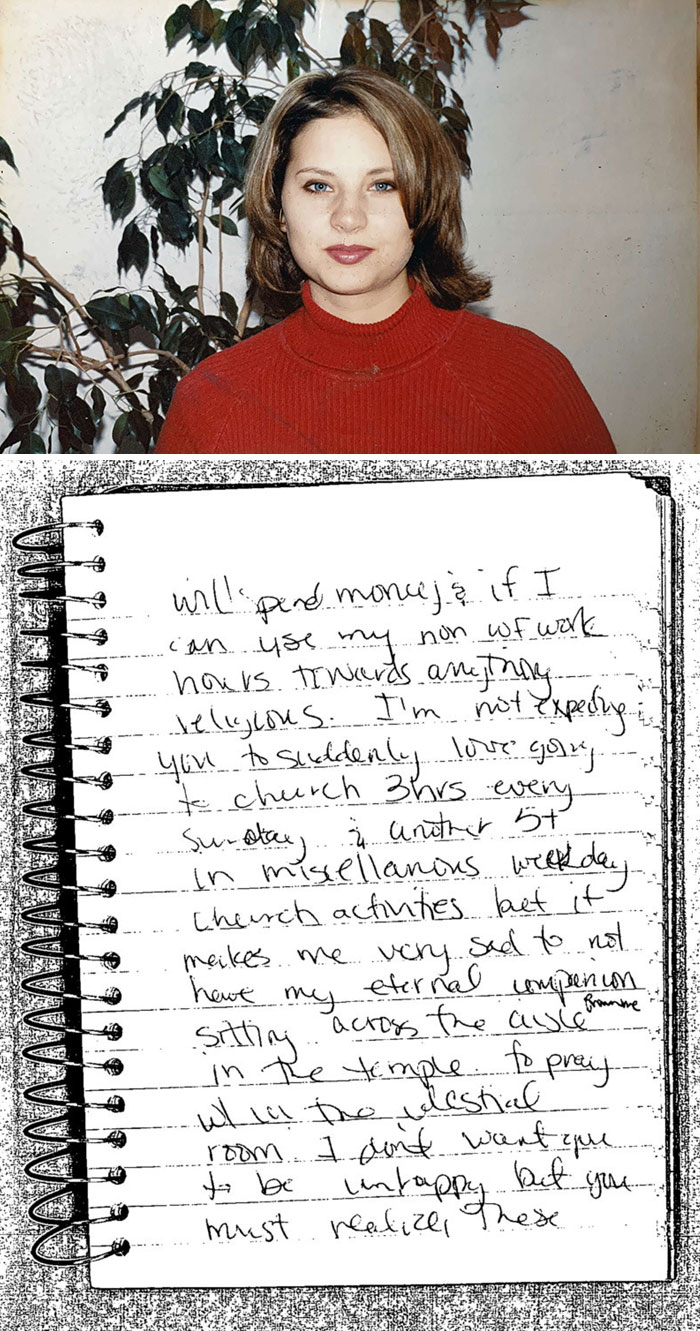 will spend money & if I
can use my non wf work
hours towards anything
religious. I'm not expecting
you to suddenly love going
to church 3hrs every
Sunday & another 5+
in misellanous weekday
church activities but it
makes me very sad to not
have my eternal companion
sitting across the aisle from me
in the temple to pray
w/ in the celestial
room I don't want you
to be unhappy but you
must realize, these